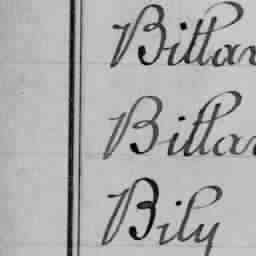 Billar
Billar
Bily